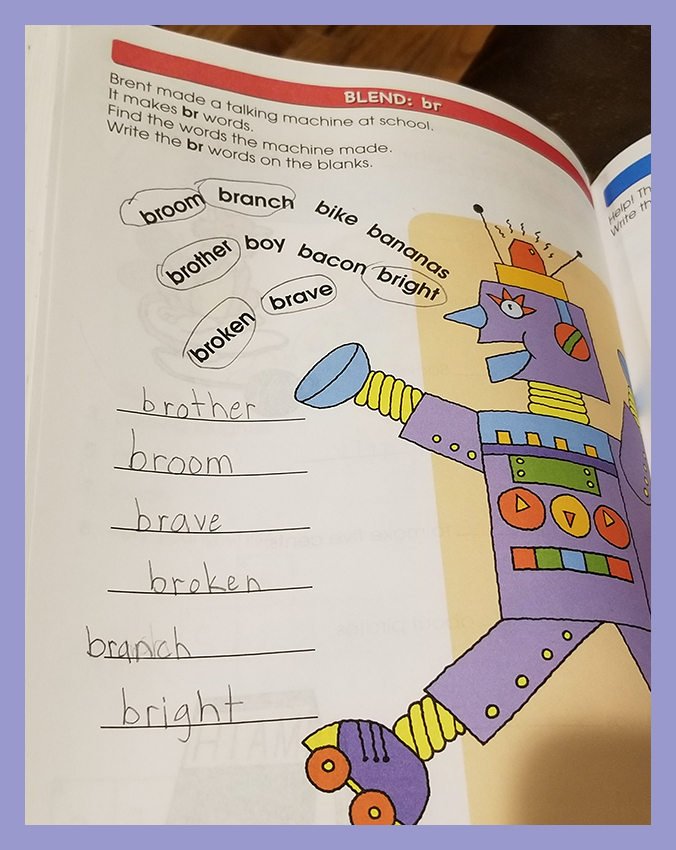 BLEND: br
Brent made a talking machine at school.
It makes br words.
Find the words the machine made.
Write the br words on the blanks.
broom branch bike bananas
brother boy bacon bright
broken brave
brother
broom
brave
broken
branch
bright
Help! Th
Write th